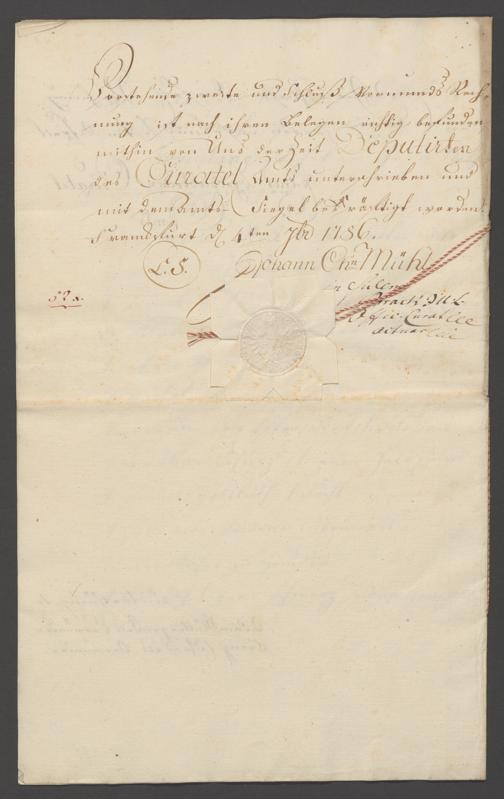 Vorstehende zweite und Schluß Vormunds Rech-
nung ist nach ihren Belegen richtig befunden
mithin von Uns der Zeit Deputirten
des Curatel Amts unterschrieben und
mit dem Amts-Siegel bekräftigt worden.
Franckfurt d. 4ten 7br 1786.
L. S.
Johann Chn Mühl
52 a.
Offic. Curatelae
actuar